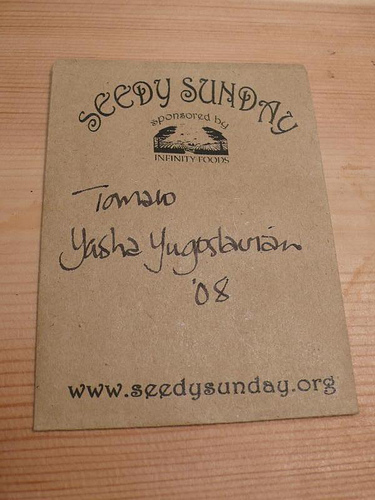 SEEDY SUNDAY
sponsored by
INFINITY FOODS
Tomato
Yasha Yugoslavian
'08
www.seedysunday.org